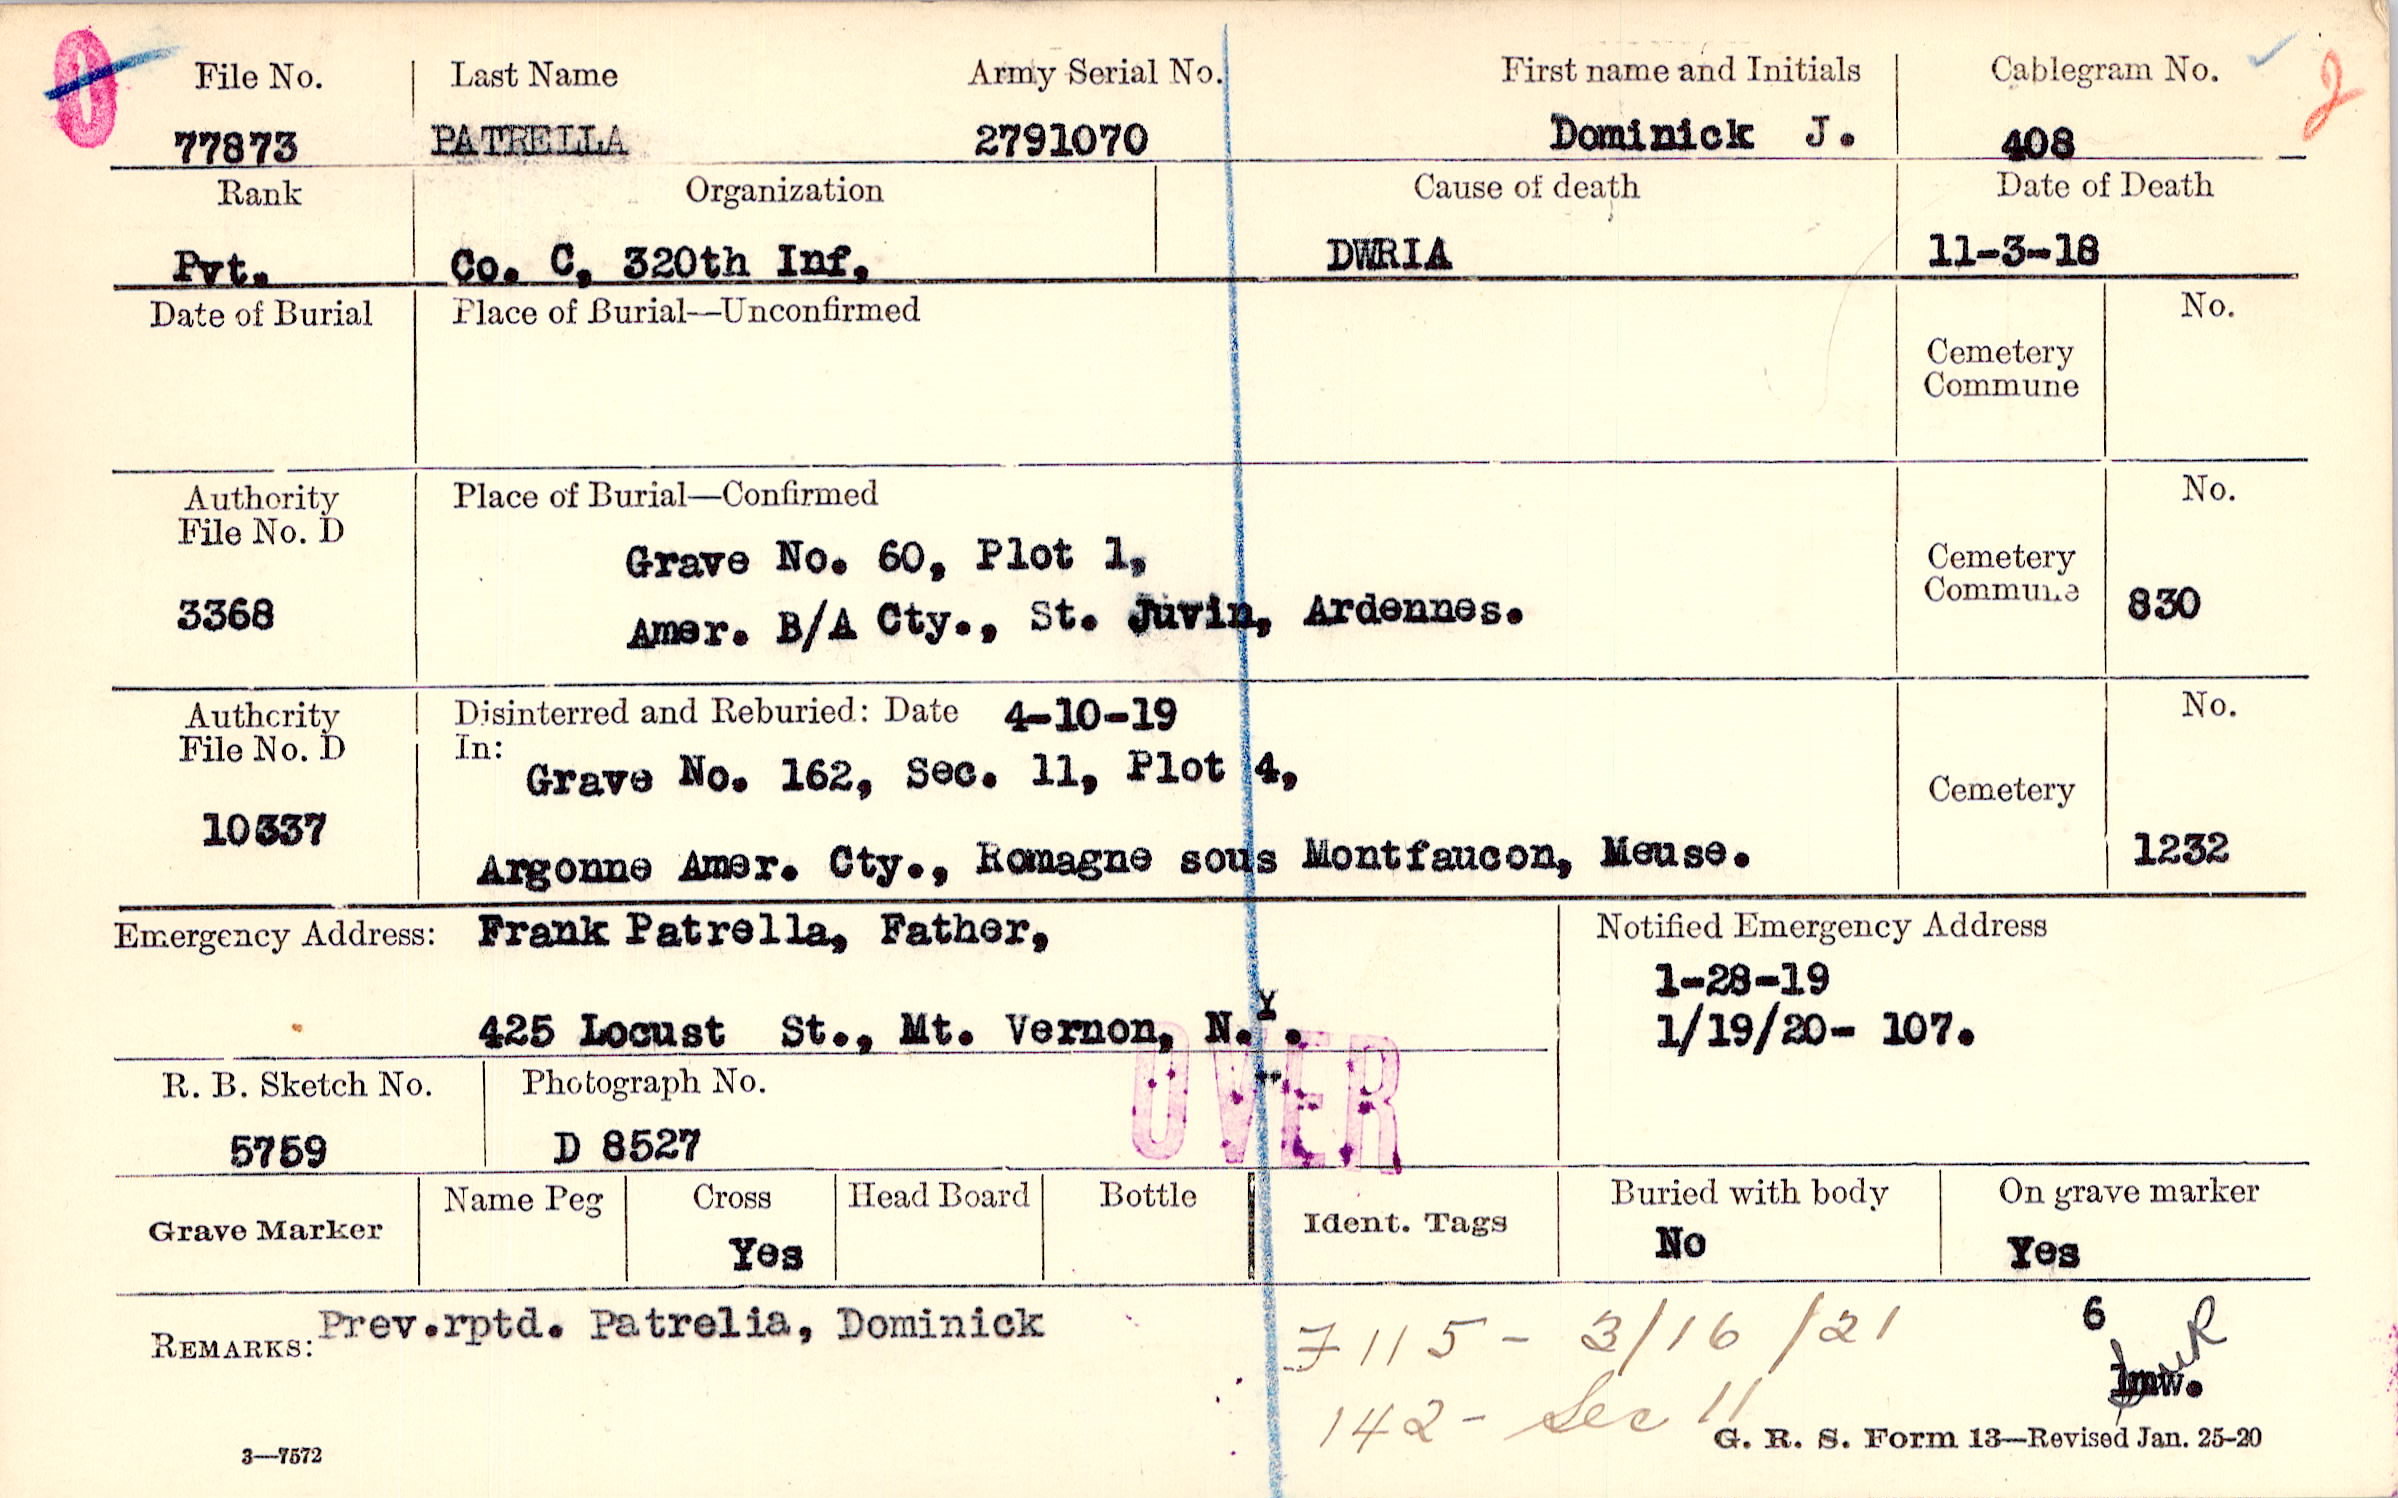 File No. Last Name Army Serial No. First name and Initials Cablegram No.
77873 PATRELLA 2791070 Dominick J. 408
Rank Organization Cause of death Date of Death
Pvt. Co. C, 320th Inf, DWRIA 11-3-18
Date of Burial Place of Burial—Unconfirmed No.
Cemetery
Commune
Authority Place of Burial—Confirmed No.
File No. D
Grave No. 60, Plot 1, Cemetery
Commune
3368 Amer. B/A Cty., St. Juvin, Ardennes. 830
Authority Disinterred and Reburied: Date 4-10-19 No.
File No. D In:
Grave No. 162, Sec. 11, Plot 4, Cemetery
10337
Argonne Amer. Cty., Romagne sous Montfaucon, Meuse. 1232
Emergency Address: Frank Patrella, Father, Notified Emergency Address
1-28-19
425 Locust St., Mt. Vernon, N.Y. 1/19/20- 107.
OVER
R. B. Sketch No. Photograph No.
5759 D 8527
Grave Marker Name Peg Cross Head Board Bottle Ident. Tags Buried with body On grave marker
Yes No Yes
REMARKS: Prev.rptd. Patrelia, Dominick 7115 - 3/16/21 6
lmw.
142 - Sec 11
3—7572 G. R. S. Form 13—Revised Jan. 25-20